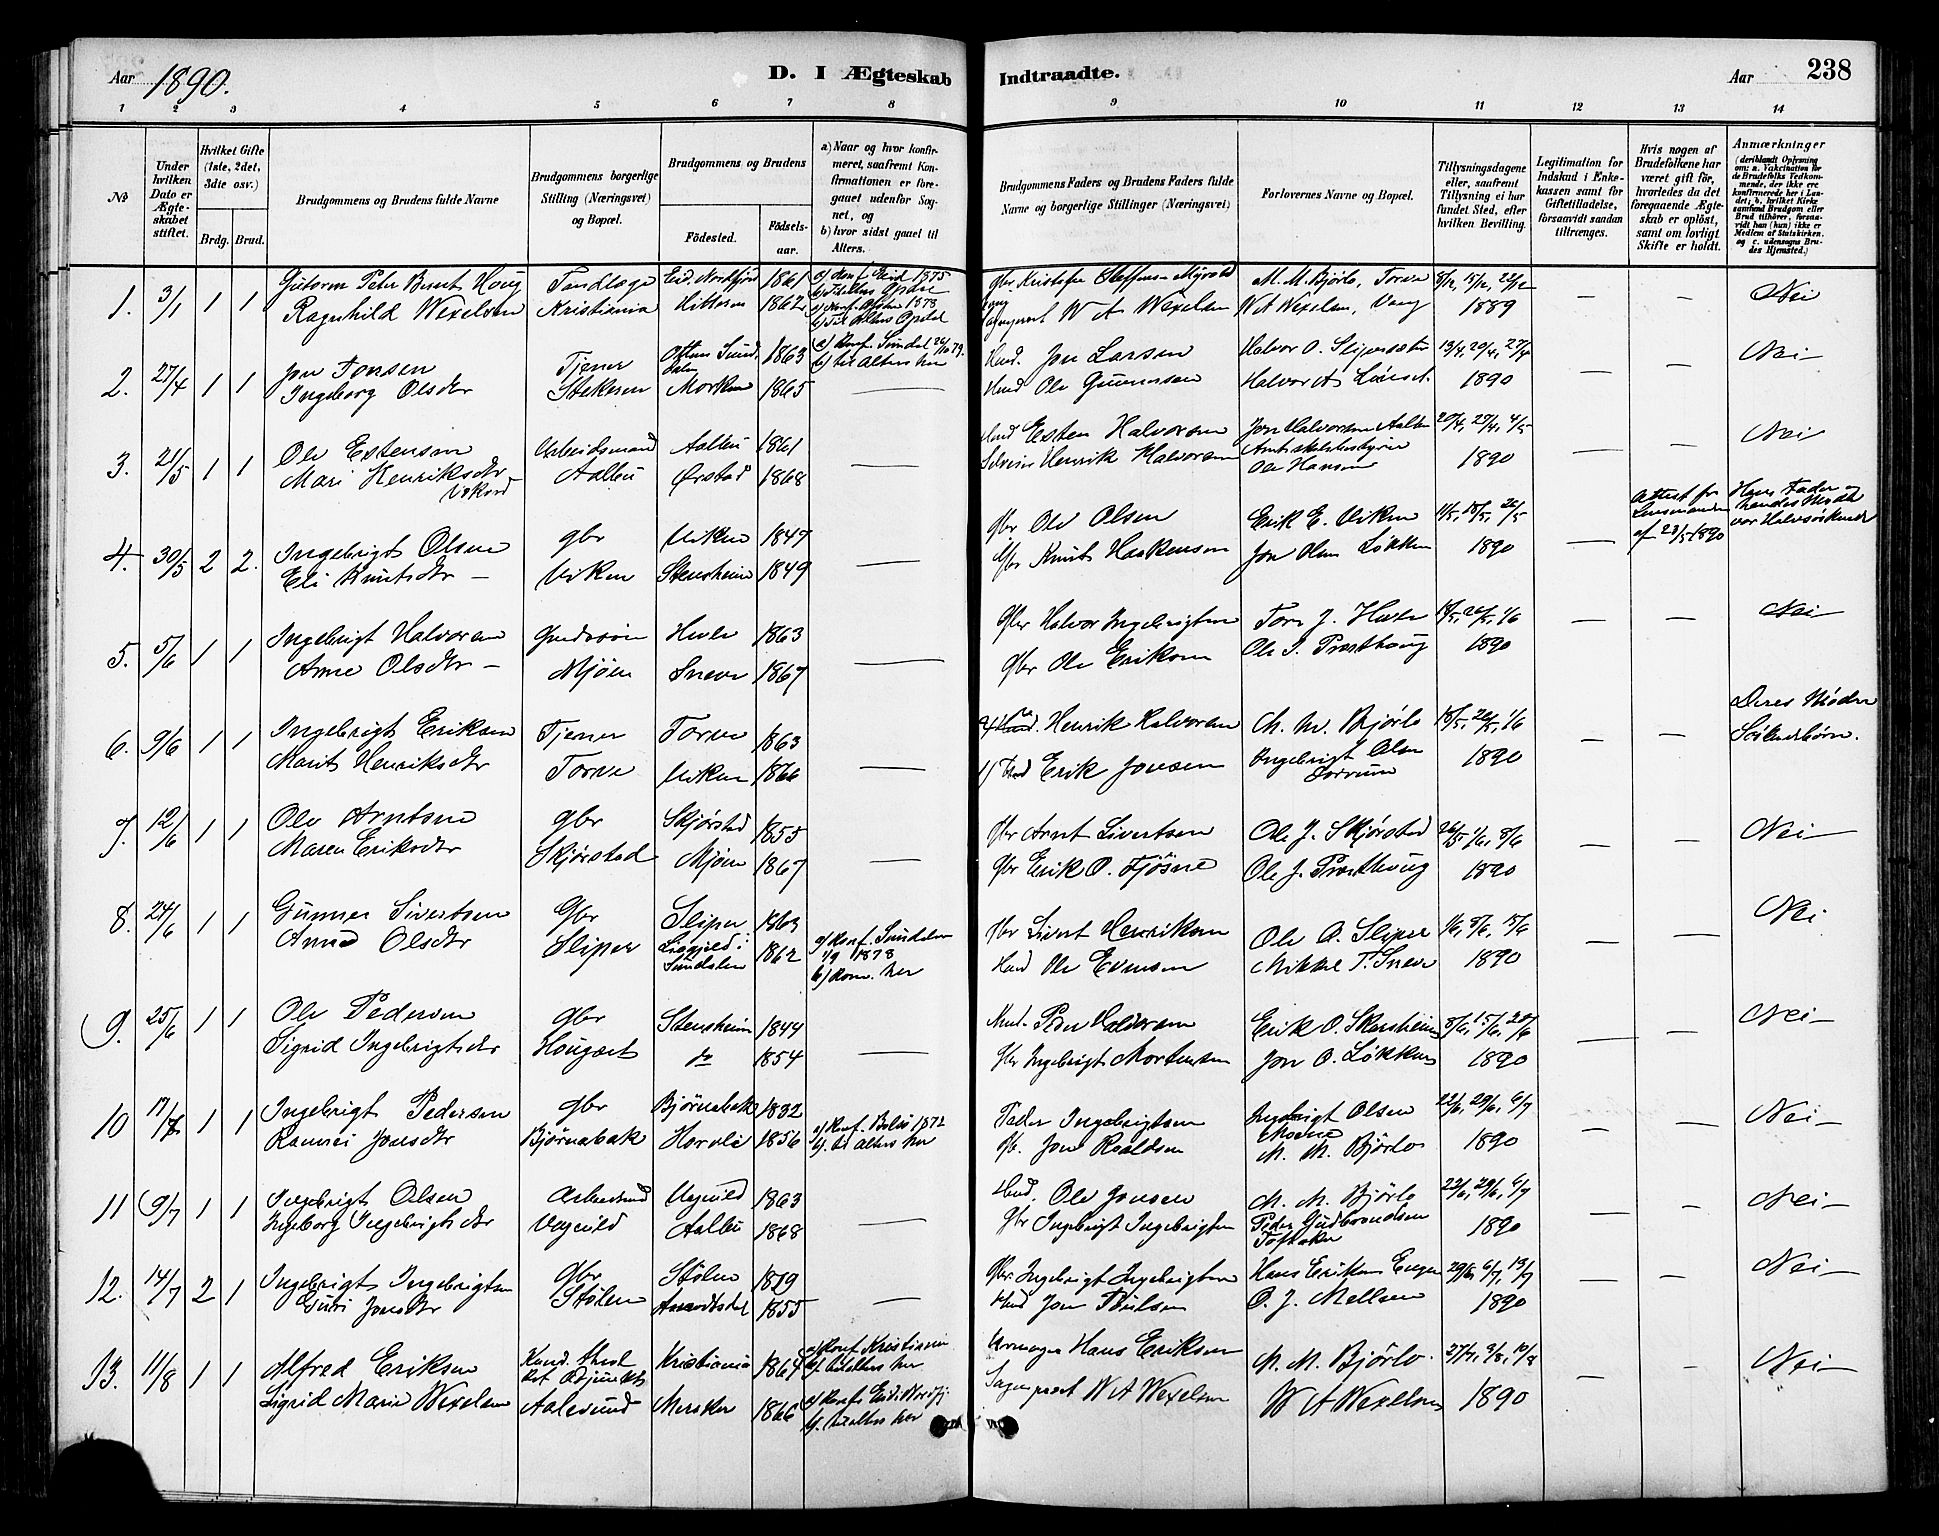 Aar 1890.
D. I Ægteskab
Indtraadte.
Aar
238
1 2 3 4 5 6 7 8 9 10 11 12 13 14
№
Under hvilken Dato er Ægteskabet stiftet.
Hvilket Gifte (1ste, 2det, 3die osv.)
Brdg. Brud.
Brudgommens og Brudens fulde Navne
Brudgommens borgerlige Stilling (Næringsvei) og Bopæl.
Brudgommens og Brudens
Fødested.
Fødselsaar.
a) Naar og hvor konfirmeret, saafremt Konfirmationen er foregaaet udenfor Sognet, og
b) hvor sidst gaaet til Alters.
Brudgommens Faders og Brudens Faders fulde Navne og borgerlige Stillinger (Næringsvei)
Forlovernes Navne og Bopæl.
Tillysningsdagene eller, saafremt Tillysning ei har fundet Sted, efter hvilken Bevilling.
Legitimation for Indskud i Enkekassen samt for Giftetilladelse, forsaavidt saadan tiltrænges.
Hvis nogen af Brudefolkene har været gift før, hvorledes da det foregaaende Ægteskab er opløst, samt om lovligt Skifte er holdt.
Anmærkninger
1. 3/1 1 1 Gutorm Peter Bernt Houg Tandlæge Eid, Nordfjord 1861 a) Konf. Eid 1875 Gbr Kristofer Steffensen Myrold M. M. Bjørlo, Torve 8/12, 15/12, 22/12 — — Nei
Ragnhild Wexelsen Kristiania Hitteren 1862 W A Wexelsen W A Wexelsen, Vang 1889
2. 27/4 1 1 Jon Jonsen Tjener 1863 a) Konf. Sundal 26/10 79. Hmd. Jon Larsen Halvor O. Slipersæter 13/4, 20/4, 27/4 — — Nei
Ingeborg Olsdtr Stølesen Morken 1865 — b) til Alters her Hmd Ole Gunnersen Halvor A Lønset. 1890
3. 21/5 1 1 Ole Estensen Arbeidsmand Aalbu 1861 — Hmd Esten Halvorsen Jon Halvorsen Aalbu 20/4, 27/4, 4/5 — — Nei
Mari Henriksdtr Aalbu Ørstad 1868 Henrik Halvorsen Amtsskolebestyrer Hansen 1890
4. 30/5 2 2. Ingebrigt Olsen gbr Viken 1847 — gbr Ole Olsen Erik E. Viken 11/5, 18/5, 26/5 — Attest fra Lensmanden af 23/5 1890 Hans Fader og hendes Moder var Halvsøskende
Eli Knutsdtr — Viken Stensheim 1849 Gbr Knut Haakensen Jon Olsen Løkken 1890
5. 5/6 1 1 Ingebrigt Halvorsen Gaardsøn Hevle 1863 — Gbr Halvor Ingebrigtsen Tore J. Hevle 18/5, 26/5, 1/6 — — Nei
Anne Olsdtr — Mjøen Sneve 1867 gbr Ole Eriksen Ole J. Prosthoug 1890
6. 9/6 1 1 Ingebrigt Eriksen Tjener Torve 1863 — Henrik Halvorsen M. M. Bjørlo 18/5, 26/5, 1/6 — — Deres Mødre Søskendebørn.
Marit Henriksdtr Torve Viken 1866 Erik Jonsen Ingebrigt Olsen 1890
7. 12/6 1 1 Ole Arntsen gbr Skjørstad 1855 — Gbr Arnt Sivertsen Ole J. Skjørstad 26/5, 1/6, 8/6 — — Nei
Maren Eriksdtr Skjørstad Mjøen 1867 Gbr Erik O. Fjøsne Ole J. Prosthoug 1890
8. 24/6 1 1 Gunner Sivertsen Gbr Sliper 1863 a) Konf. Sundalen Gbr Sivert Henriksen Ole A. Sliper 1/6, 8/6, 15/6 — — Nei
Anne Olsdtr Sliper Sundalen 1862 1878 b) Kom. her Hmd Ole Evensen Mikkel T. Sneve 1890
9. 25/6 1 1 Ole Pedersen gbr Stensheim 1844 — Hmd. Peder Halvorsen Erik O. Skarsheim 8/6, 15/6, 22/6 — — Nei
Sigrid Ingebrigtsdtr Hougset do 1854 Gbr Ingebrigt Mortensen Jon O. Løkken 1890
10 17/7 1 1 Ingebrigt Pedersen gbr Bjørnabak 1832 a) Konf. Bolsø 1872 Peder Ingebrigtsen Ingebrigt Olsen 22/6, 29/6, 6/7 — — Nei
Rannei Jonsdtr Bjørnabak Horvli 1856 b). til Alters her Gb. Jon Roaldsen M. M. Bjørlo 1890
11 9/7 1 1 Ingebrigt Olsen Arbeidsmd Vognild 1863 — Hmd. Ole Jonsen M. M. Bjørlo 22/6, 29/6, 6/7 — — Nei
Ingeborg Ingebrigtsdtr Vognild Aalbu 1868 Gbr Ingebrigt Ingebrigtsen Peder Gudbrandsen Toftaker 1890
12. 14/7 2 1 Ingebrigt Ingebrigtsen gbr Stølen 1819 — Gbr Ingebrigt Ingebrigtsen Hans Eriksen Engen 29/6, 6/7, 13/7 — — Nei
Guri Jonsdtr Stølen 1855 Hmd Jon Poulsen O. J. Mellsem 1890
13. 11/8 1 1 Alfred Eriksen Kand. theol Kristiania 1864 a) Konf Kristiania b). til Alters her Hans Eriksen M. M. Bjørlo. 27/7, 3/8, 10/8 — — Nei
Sigrid Marie Wexelsen Aalesund Meraker 1866 a) Konf Eid. Nordfj b). til Alters her W A Wexelsen W A Wexelsen 1890